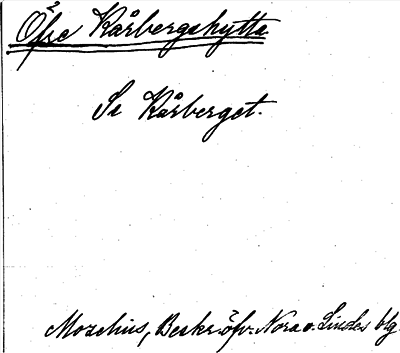 Öfre Kårbergshytta
Se Kårberget.
Moselius, Beskr. öfv. Nora o. Lindes blg.